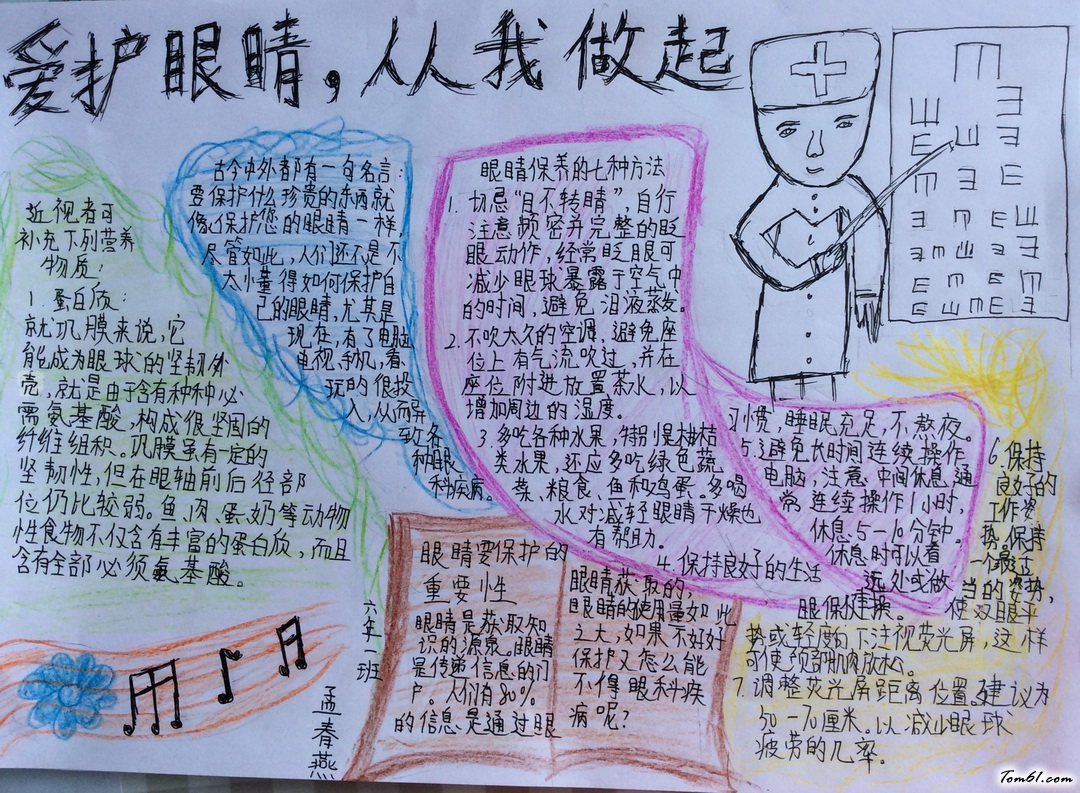 爱护眼睛，从我做起
近视者可
补充下列营养
物质：
1. 蛋白质：
就巩膜来说，它
能成为眼球的坚韧外
壳，就是由于含有种种必
需氨基酸，构成很坚固的
纤维组积。巩膜虽有一定的
坚韧性，但在眼轴前后径部
位仍比较弱。鱼、肉、蛋、奶等动物
性食物不仅含有丰富的蛋白质，而且
含有全部必须氨基酸。
古今中外都有一句名言：
要保护什么珍贵的东西就
像保护您的眼睛一样，
尽管如此，人们还不是不
大小懂得如何保护自
己的眼睛，尤其是
现在，有了电脑
电视，手机，看，
玩的很投
入，从而屏
致各
种眼
科疾病。
眼睛保养的七种方法
1. 切忌“目不转睛”，自行
注意频密并完整的眨
眼动作，经常眨眼可
减少眼球暴露于空气中
的时间，避免泪液蒸发。
2. 不吹太久的空调，避免座
位上有气流吹过，并在
座位附进放置茶水，以
增加周边的湿度。
3. 多吃各种水果，特别是柑桔
类水果，还应多吃绿色蔬
菜、粮食、鱼和鸡蛋。多喝
水对减轻眼睛干燥也
有帮助。
4. 保持良好的生活
习惯，睡眠充足，不熬夜。
5. 避免长时间连续操作
电脑，注意中间休息，通
常连续操作1小时，
休息5-10分钟。
休息时可以看
远处或做
眼保健操。
6. 保持
良好的
工作姿
势。保持
一个最适
当的姿势，
使双眼平
势或轻度向下注视荧光屏，这样
可使颈部肌肉放松。
7. 调整荧光屏距离位置。建议为
50-70厘米。以减少眼球
疲劳的几率。
眼睛要保护的
重要性
眼睛是获取知
识的源泉。眼睛
是传递信息的门
户。人们有80%
的信息是通过眼
眼睛获取的，
眼睛的使用量如此
之大，如果不好好
保护又怎么能
不得眼科疾
病呢？
六年一班
孟春燕
Tom61.com